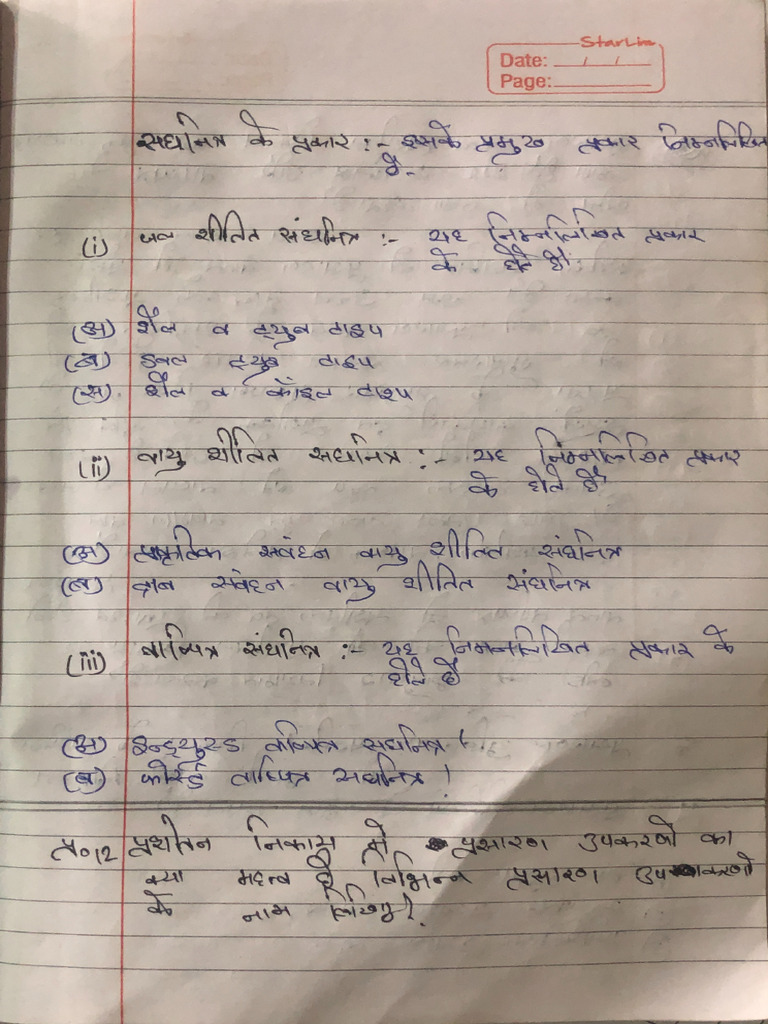 StarLine
Date: / /
Page:
संघनित्र के प्रकार :- इसके प्रमुख प्रकार निम्नलिखित
है-
(i) जल शीतित संघनित्र :- यह निम्नलिखित प्रकार
के होते है।
(अ) शैल व ट्युब टाइप
(ब) डबल ट्युब टाइप
(स) शैल व कॉइल टाइप
(ii) वायु शीतित संघनित्र :- यह निम्नलिखित प्रकार
के होते है
(अ) प्राकृतिक संवहन वायु शीतित संघनित्र
(ब) संवहन वायु शीतित संघनित्र
(iii) वाष्पित्र संघनित्र :- यह निम्नलिखित प्रकार के
होते है
(अ) संघनित्र।
(ब) फोर्स्ड संघनित्र।
प्र०12 प्रशीतन निकाय में प्रसारण उपकरणो का
क्या महत्व है विभिन्न प्रसारण उपकरणो
के नाम लिखिए?